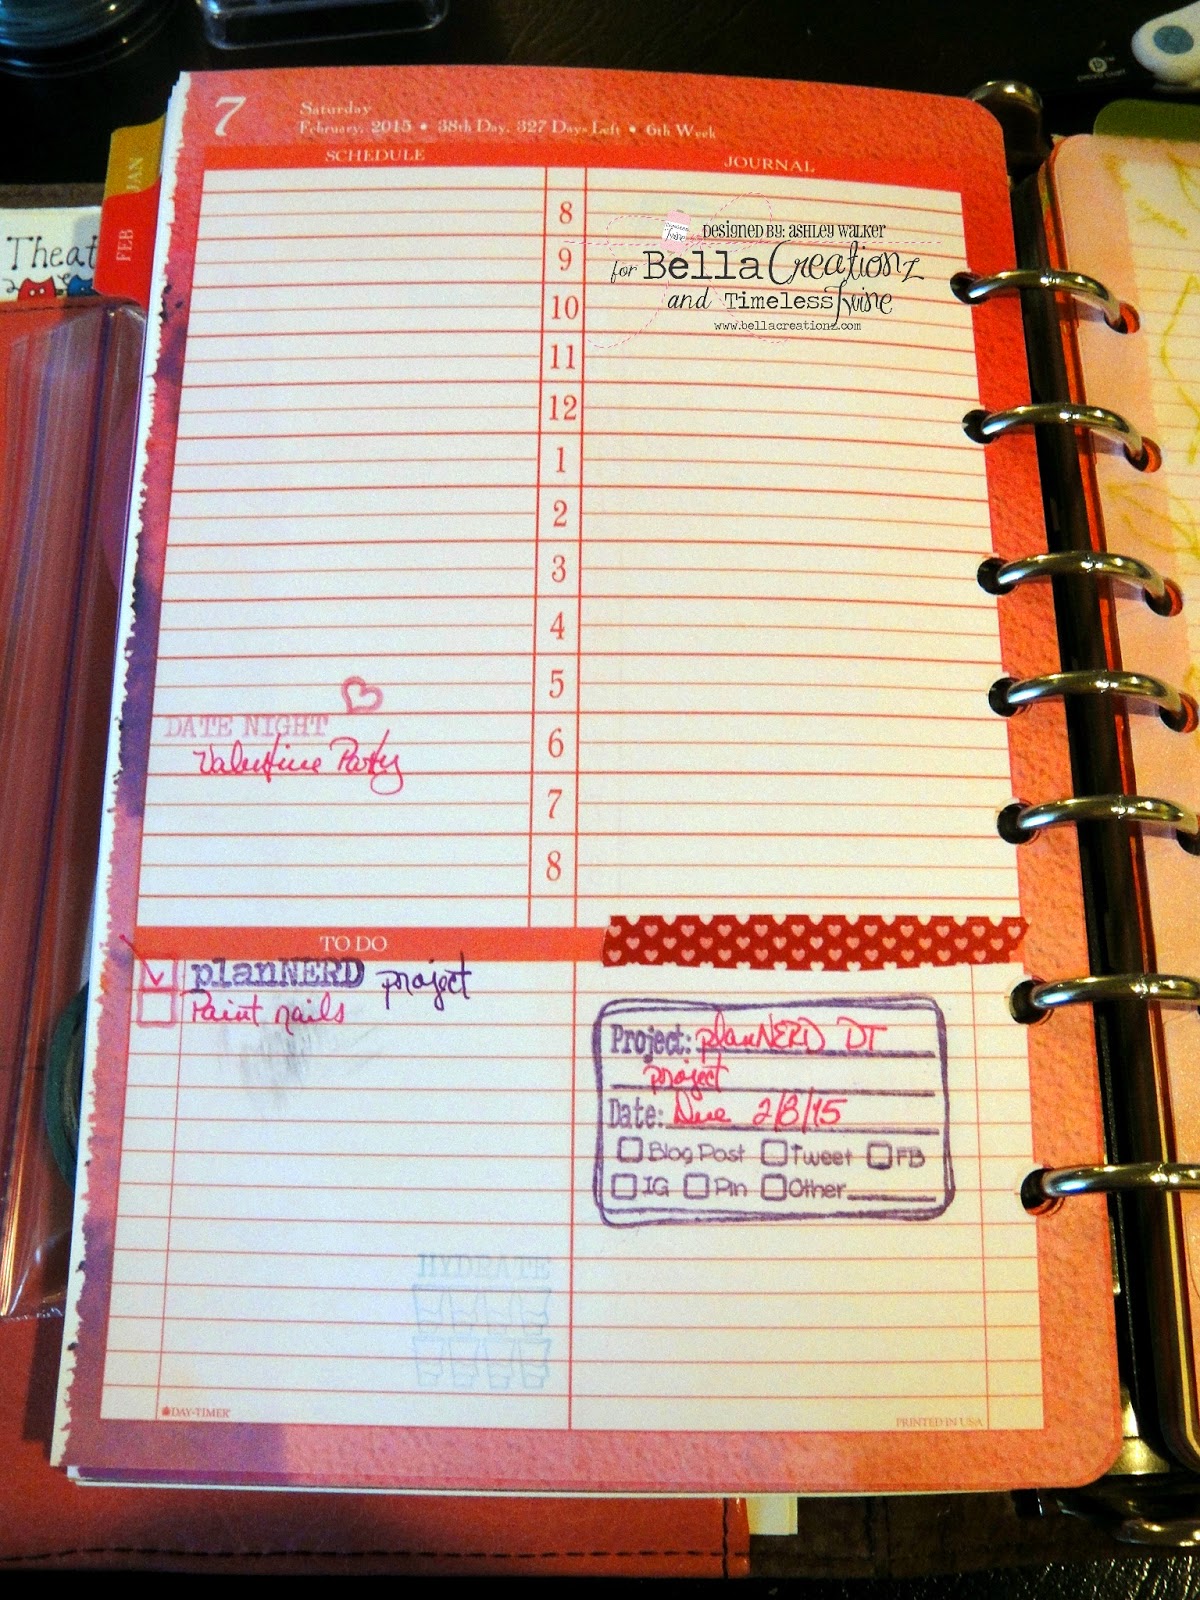 7
Saturday
February, 2015 • 38th Day, 327 Days Left • 6th Week
SCHEDULE
JOURNAL
JAN
FEB
Theat
8
9
10
11
12
1
2
3
4
5
6
7
8
DESIGNED BY: ASHLEY WALKER
for Bella Creationz
and Timeless Twine
www.bellacreationz.com
DATE NIGHT
Valentine Party
TO DO
planNERD project
Paint nails
Project: planNERD DT
project
Date: Due 2/8/15
Blog Post Tweet FB
IG Pin Other
HYDRATE
DAY-TIMER
PRINTED IN USA